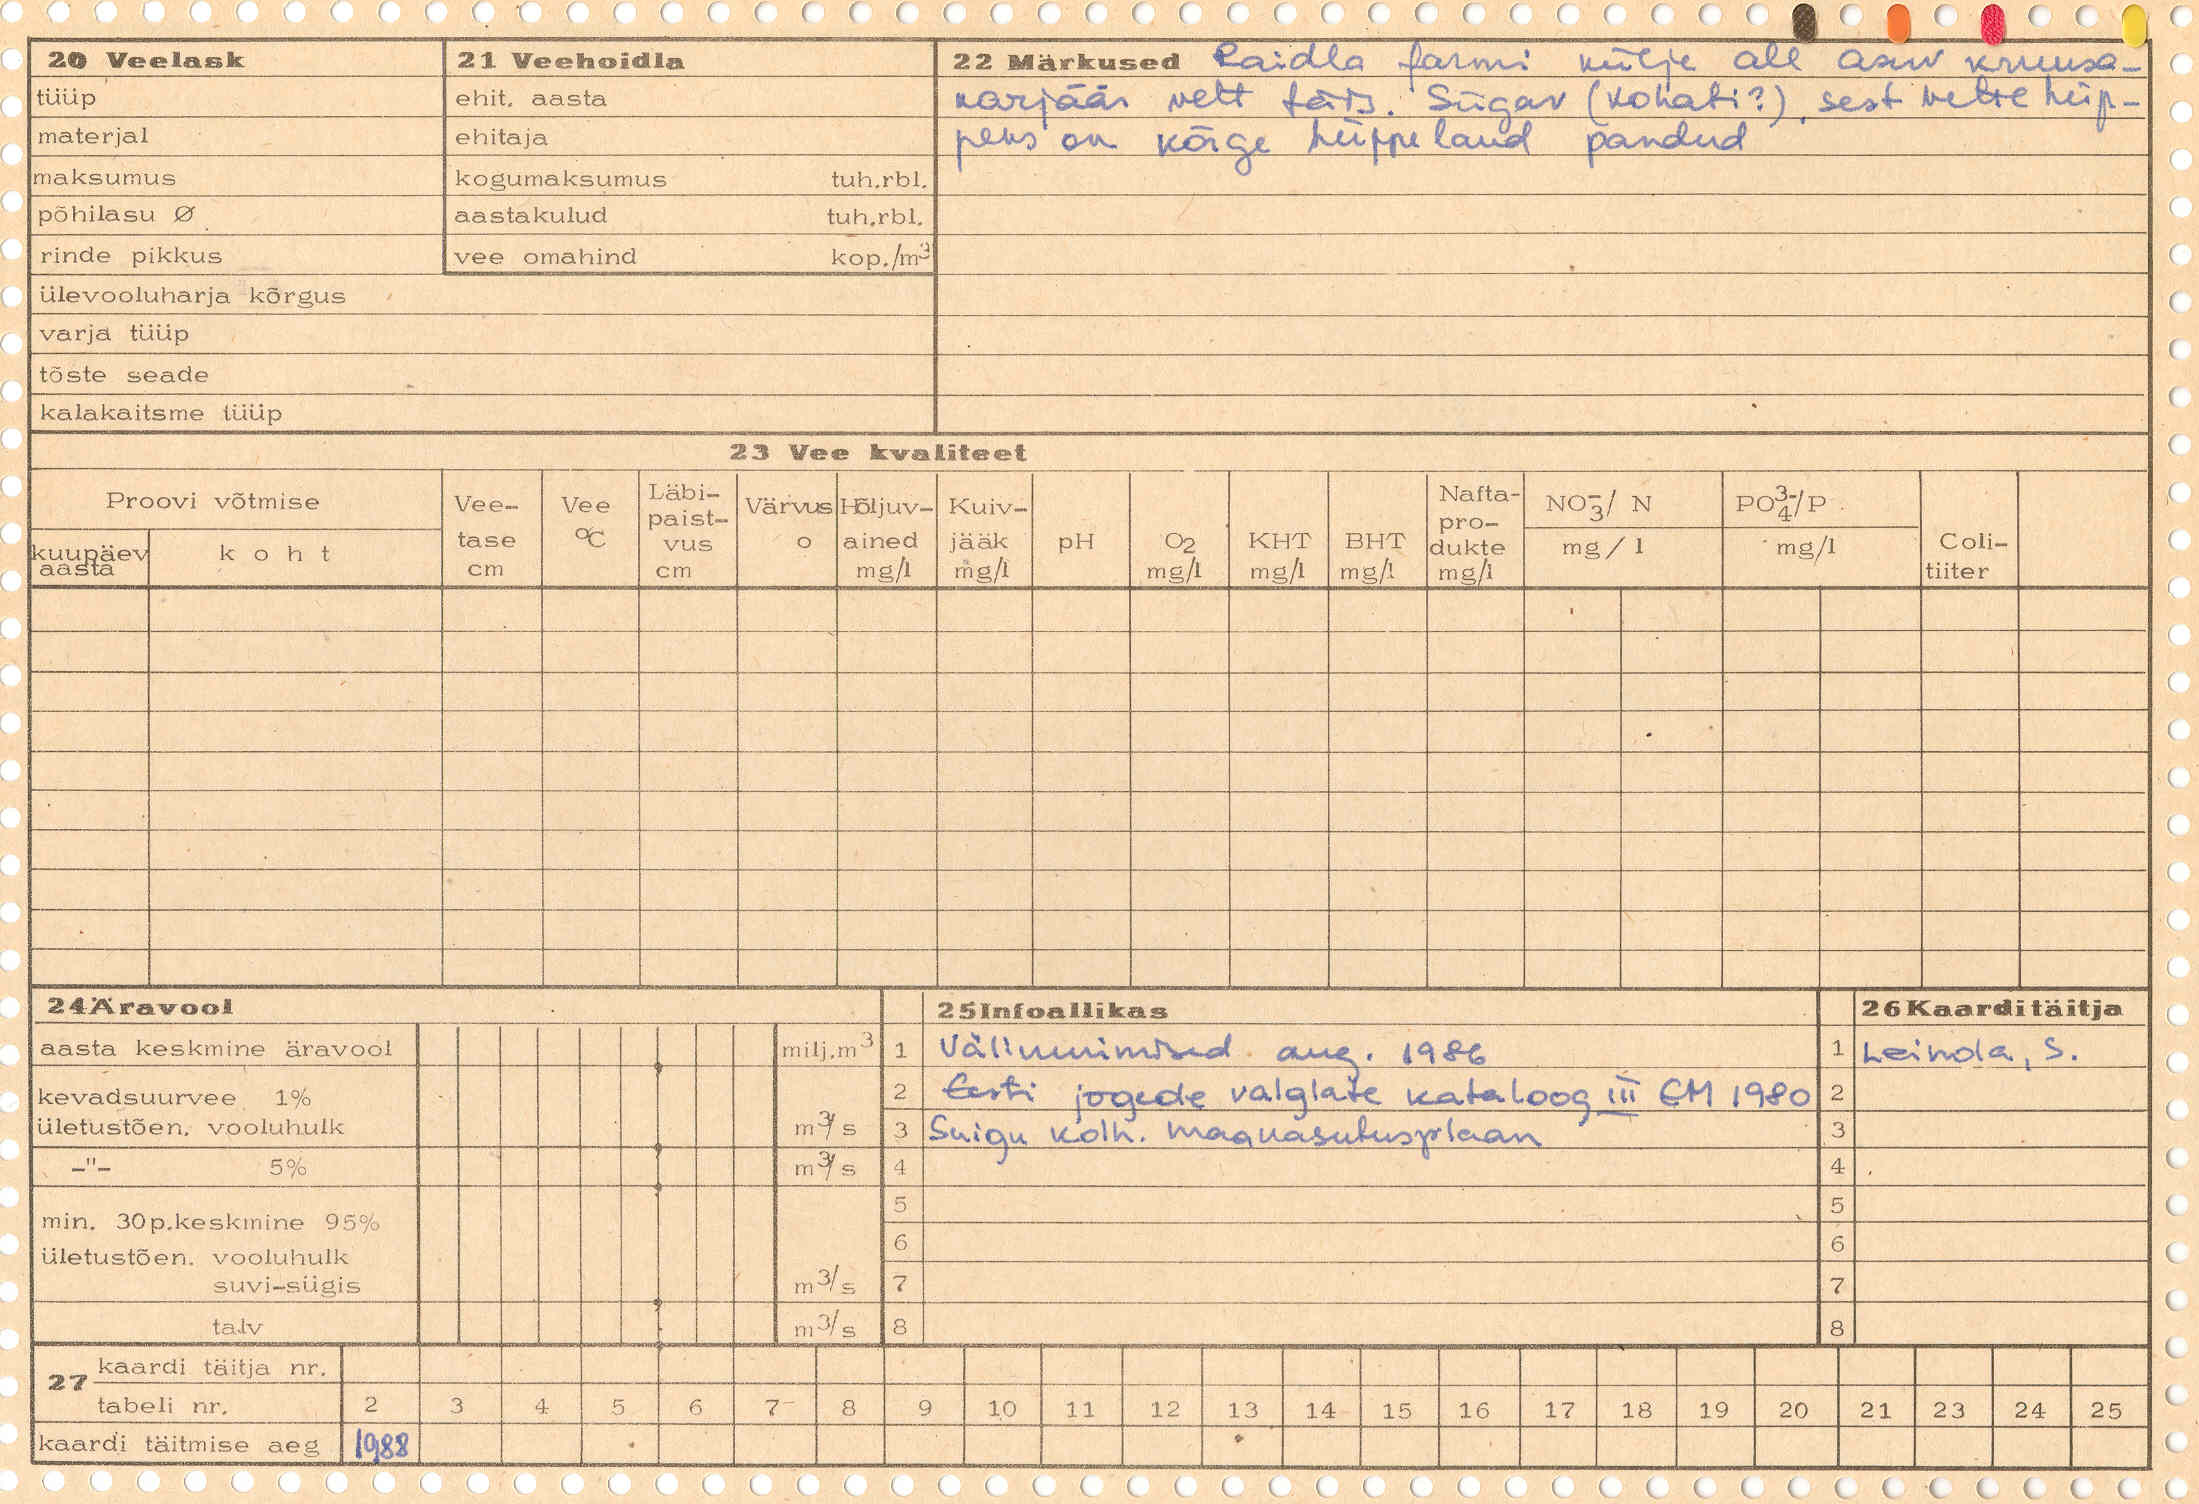 20 Veelask
tüüp
materjal
maksumus
põhilasu Ø
rinde pikkus
ülevooluharja kõrgus
varja tüüp
tõste seade
kalakaitsme tüüp
21 Veehoidla
ehit. aasta
ehitaja
kogumaksumus tuh.rbl.
aastakulud tuh.rbl.
vee omahind kop./m³
22 Märkused Raidla farmi külje all asuv kruusa-
karjäär vett täis. Sügav (kohati?), sest vette hüp-
peks on kõrge hüppelaud pandud
23 Vee kvaliteet
Proovi võtmise
kuupäev
aasta
koht
Vee-
tase
cm
Vee
°C
Läbi-
paist-
vus
cm
Värvus
o
Hõljuv-
ained
mg/l
Kuiv-
jääk
mg/l
pH
O₂
mg/l
KHT
mg/l
BHT
mg/l
Nafta-
pro-
dukte
mg/l
NO₃⁻/ N
mg/l
PO₄³⁻/P
mg/l
Coli-
tiiter
24 Äravool
aasta keskmine äravool milj.m³
kevadsuurvee 1%
ületustõen. vooluhulk m³/s
-"- 5% m³/s
min. 30p.keskmine 95%
ületustõen. vooluhulk
suvi-sügis m³/s
talv m³/s
25 Infoallikas
1 Välinuimised aug. 1986
2 Eesti jogede valglate kataloog III EM 1980
3 Suigu kolh. maakasutusplaan
4
5
6
7
8
26 Kaarditäitja
1 Leinola, S.
2
3
4
5
6
7
8
27 kaardi täitja nr.
tabeli nr. 2 3 4 5 6 7 8 9 10 11 12 13 14 15 16 17 18 19 20 21 23 24 25
kaardi täitmise aeg 1988